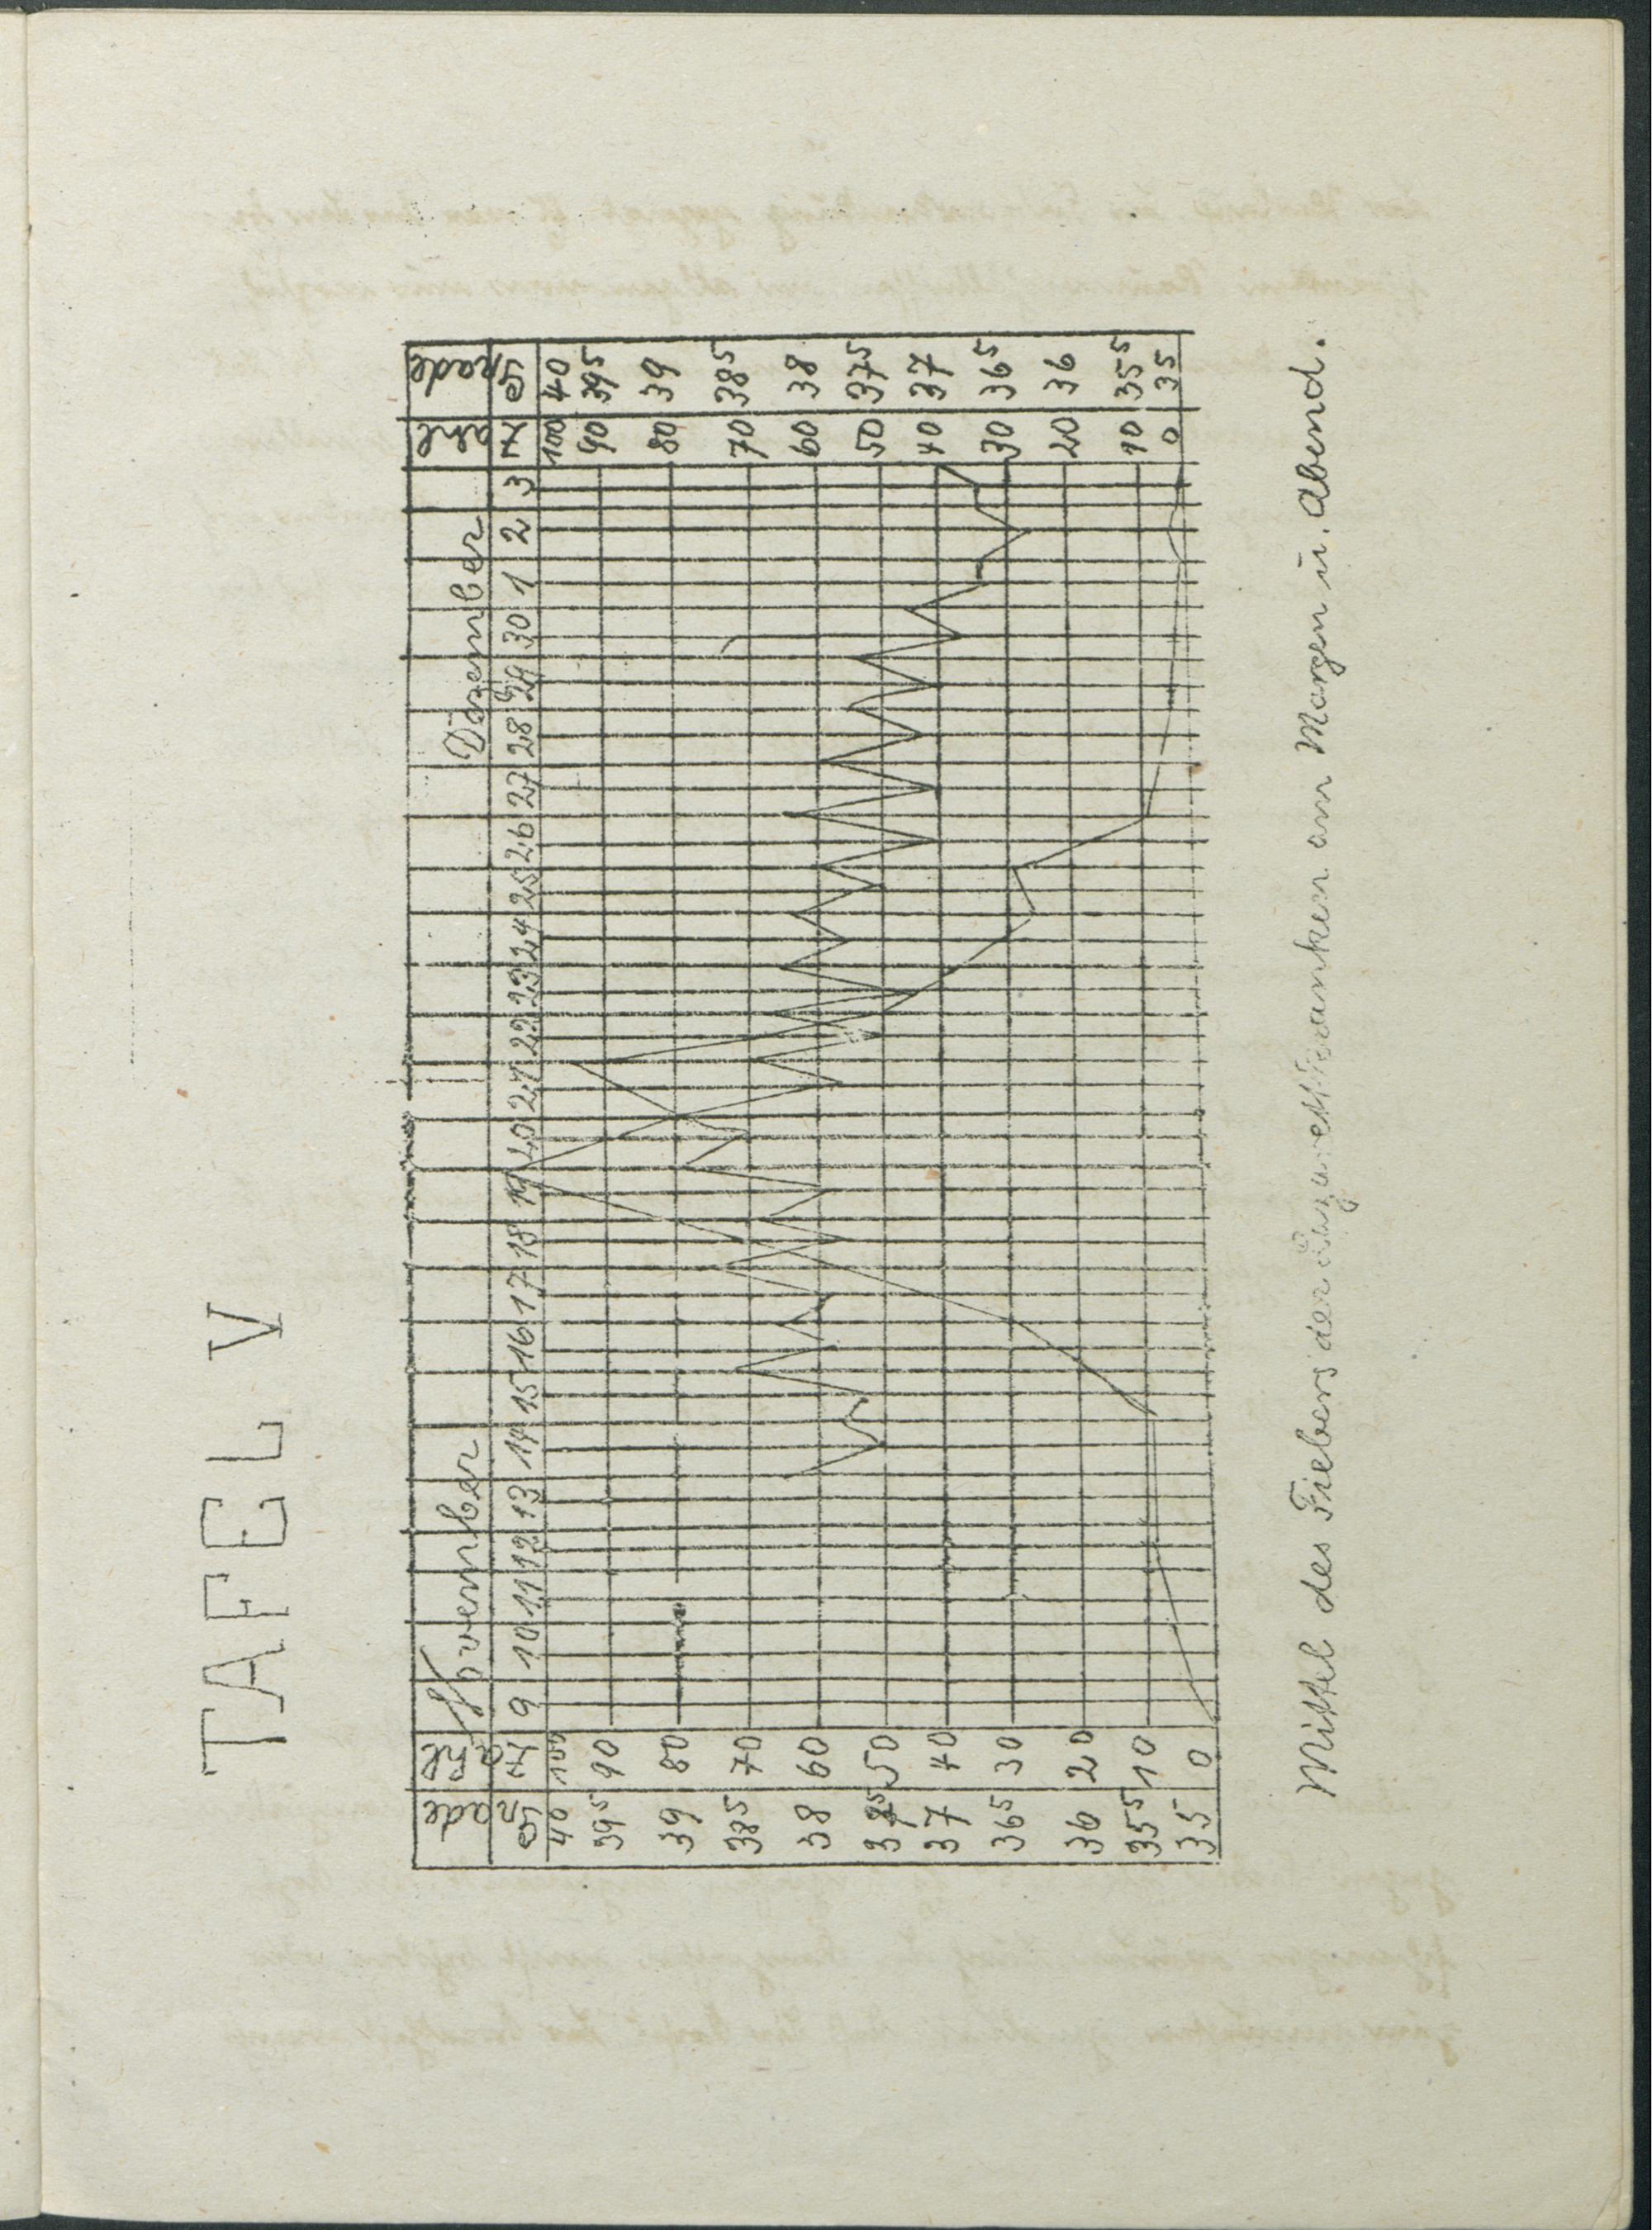 TAFEL V
November Dezember
Grade Zahl 9 10 11 12 13 14 15 16 17 18 19 20 21 22 23 24 25 26 27 28 29 30 1 2 3 Zahl Grade
40 100 100 40
39⁵ 90 90 39⁵
39 80 80 39
38⁵ 70 70 38⁵
38 60 60 38
37⁵ 50 50 37⁵
37 40 40 37
36⁵ 30 30 36⁵
36 20 20 36
35⁵ 10 10 35⁵
35 0 0 35
Mittel des Fiebers der Lazarettkranken am Morgen u. Abend.